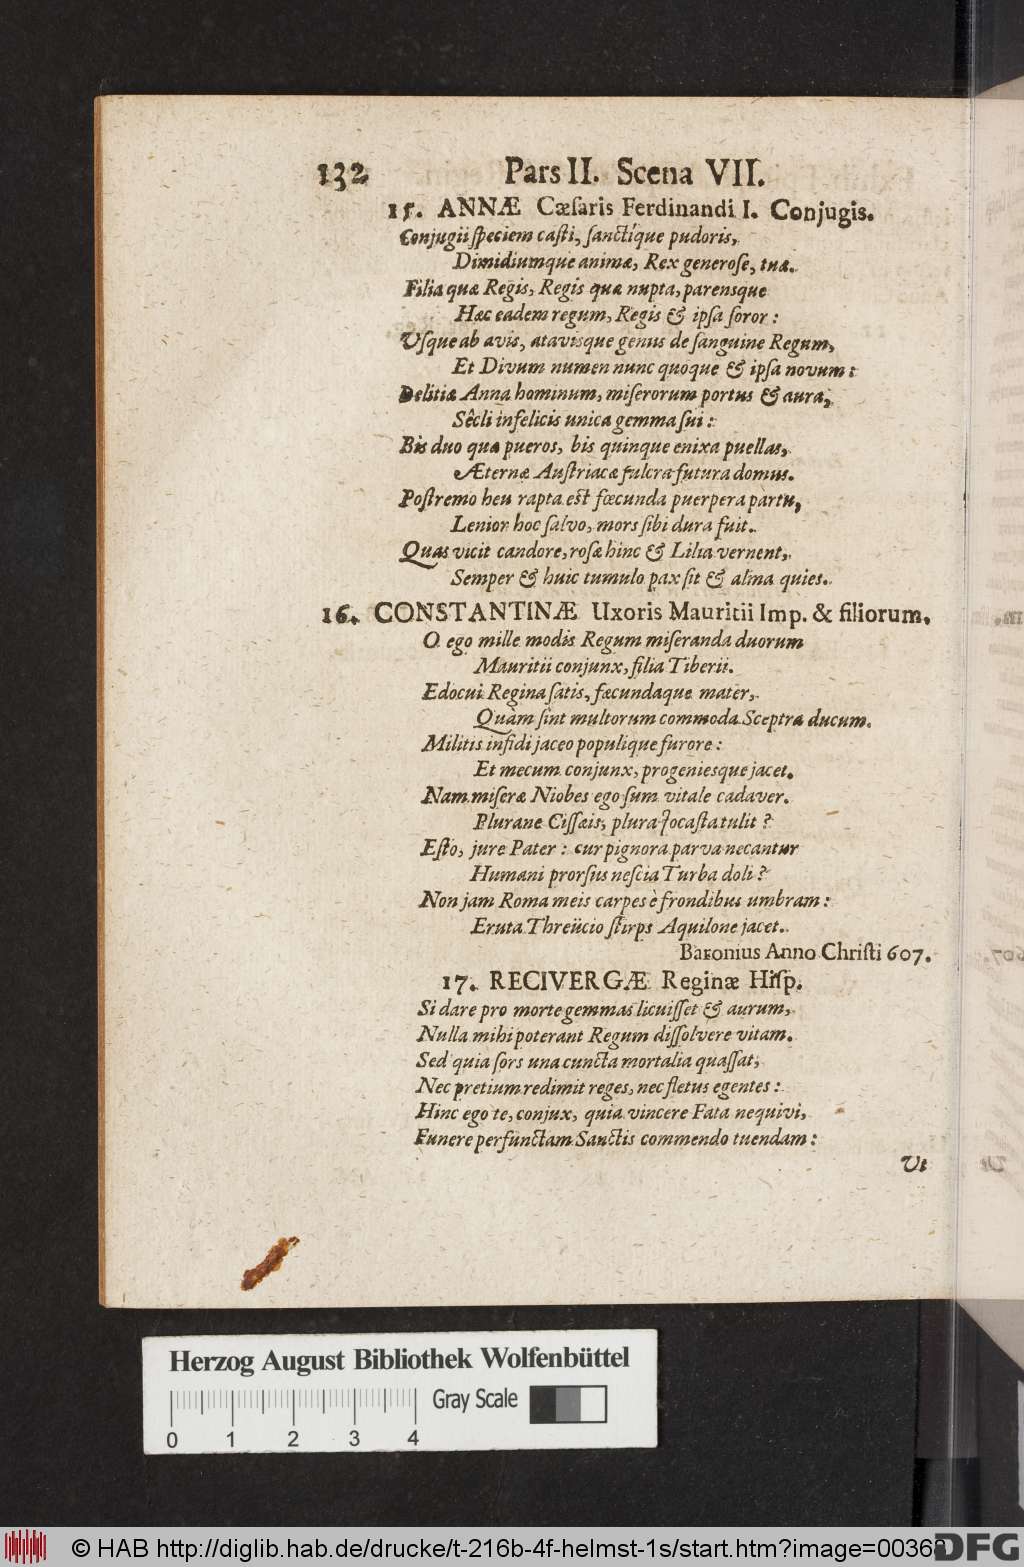 132 Pars II. Scena VII.
15. ANNÆ Cæsaris Ferdinandi I. Conjugis.
Conjugii speciem casti, sanctíque pudoris,
Dimidiumque animæ, Rex generose, tuæ.
Filia quæ Regis, Regis quæ nupta, parensque
Hæc eadem regum, Regis & ipsa soror:
Usque ab avis, atavisque genus de sanguine Regum,
Et Divum numen nunc quoque & ipsa novum:
Delitiæ Anna hominum, miserorum portus & aura,
Sêcli infelicis unica gemma sui:
Bis duo quæ pueros, bis quinque enixa puellas,
Æternæ Austriacæ fulcra futura domus.
Postremo heu rapta est fœcunda puerpera partu,
Lenior hoc salvo, mors sibi dura fuit.
Quas vicit candore, rosæ hinc & Lilia vernent,
Semper & huic tumulo pax sit & alma quies.
16. CONSTANTINÆ Uxoris Mauritii Imp. & filiorum.
O ego mille modis Regum miseranda duorum
Mauritii conjunx, filia Tiberii.
Edocui Regina satis, fœcundaque mater,
Quàm sint multorum commoda Sceptra ducum.
Militis infidi jaceo populique furore:
Et mecum conjunx, progeniesque jacet.
Nam miseræ Niobes ego sum vitale cadaver.
Plurane Cissæis, plura Jocasta tulit?
Esto, jure Pater: cur pignora parva necantur
Humani prorsus nescia Turba doli?
Non jam Roma meis carpes è frondibus umbram:
Eruta Threücio stirps Aquilone jacet.
Baronius Anno Christi 607.
17. RECIVERGÆ Reginæ Hisp.
Si dare pro morte gemmas licuisset & aurum,
Nulla mihi poterant Regum dissolvere vitam.
Sed quia sors una cuncta mortalia quassat,
Nec pretium redimit reges, nec fletus egentes:
Hinc ego te, conjux, quia vincere Fata nequivi,
Funere perfunctam Sanctis commendo tuendam:
Ut
Herzog August Bibliothek Wolfenbüttel
Gray Scale
0 1 2 3 4
© HAB http://diglib.hab.de/drucke/t-216b-4f-helmst-1s/start.htm?image=00368
DFG